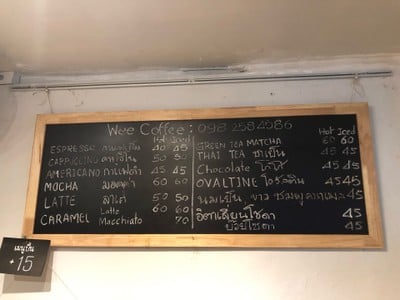 Wee Coffee : 098 2584986
Hot Iced
ESPRESSO 40 45
CAPPUCCINO 50 50
AMERICANO 45 45
MOCHA มอคค่า 60 60
LATTE ลาเต้ 50 50
CARAMEL Latte 60 60
Macchiato 70
Hot Iced
GREEN TEA MATCHA 60 60
THAI TEA ชาเย็น 45
Chocolate โกโก้ 45 45
OVALTINE โอวัลติน 45 45
นมเย็น ขาว ชมพู 45
อิตาเลี่ยนโซดา 45
บ๊วยโซดา 45
เมนูปั่น
+15